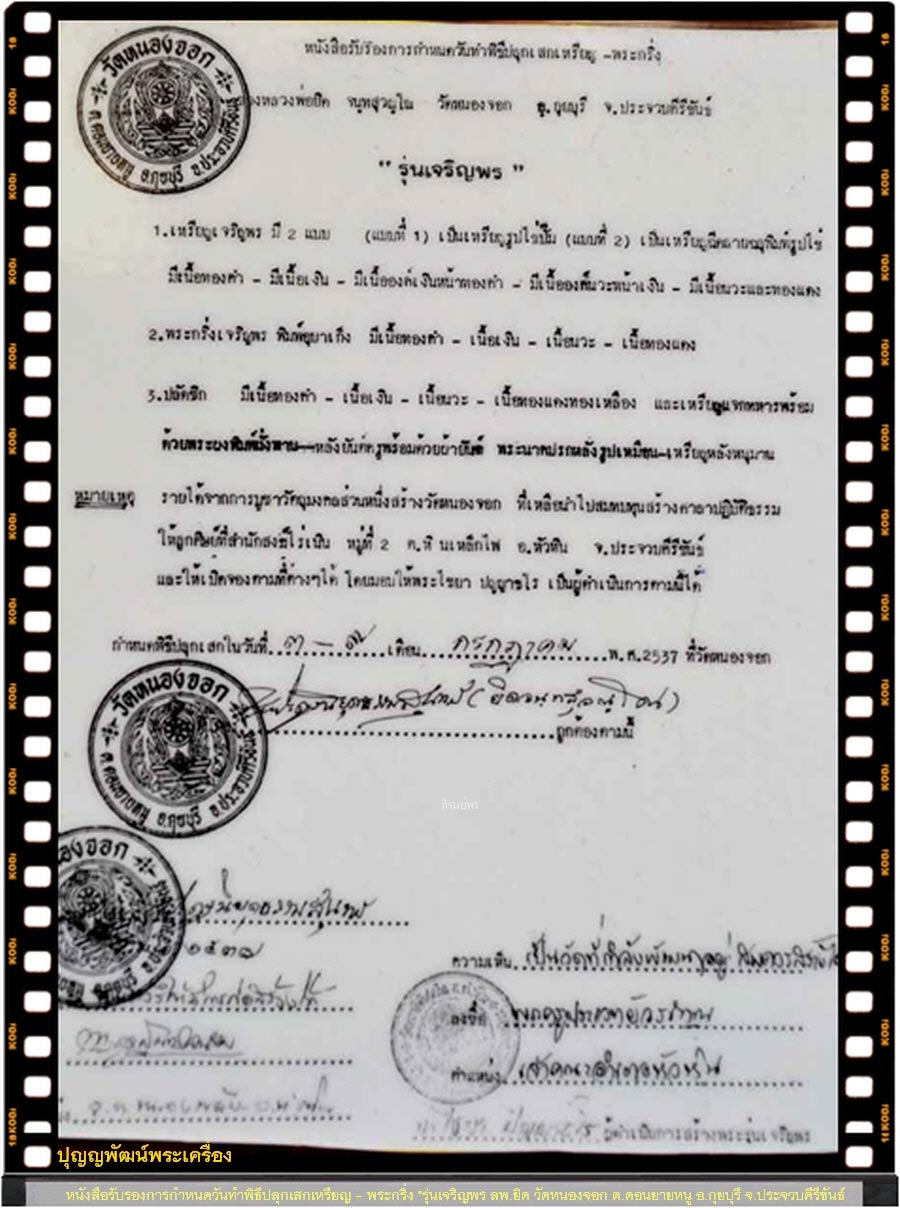 หนังสือรับรองการกำหนดวันทำพิธีปลุกเสกเหรียญ -พระกริ่ง
ของหลวงพ่อยิด จนฺทสุวณฺโณ วัดหนองจอก อ.กุยบุรี จ.ประจวบคีรีขันธ์
วัดหนองจอก
ต.ดอนยายหนู อ.กุยบุรี จ.ประจวบคีรีขันธ์
" รุ่นเจริญพร "
1.เหรียญเจริญพร มี 2 แบบ (แบบที่ 1) เป็นเหรียญรูปไข่ปั๊ม (แบบที่ 2) เป็นเหรียญฉีดลายฉลุพิมพ์รูปไข่
มีเนื้อทองคำ - มีเนื้อเงิน - มีเนื้อองค์เงินหน้าทองคำ - มีเนื้อองค์นวะหน้าเงิน - มีเนื้อนวะและทองแดง
2.พระกริ่งเจริญพร พิมพ์อุบาเก็ง มีเนื้อทองคำ - เนื้อเงิน - เนื้อนวะ - เนื้อทองแดง
3.ปลัดขิก มีเนื้อทองคำ - เนื้อเงิน - เนื้อนวะ - เนื้อทองแดงทองเหลือง และเหรียญแจกทหารพร้อม
ด้วยพระผงพิมพ์ -หลังยันต์ครูพร้อมด้วยผ้ายันต์ พระนาคปรกหลังรูปเหมือน-เหรียญหลังหนุมาน
หมายเหตุ รายได้จากการบูชาวัตถุมงคลส่วนหนึ่งสร้างวัดหนองจอก ที่เหลือนำไปสมทบทุนสร้างศาลาปฏิบัติธรรม
ให้ลูกศิษย์ที่สำนักสงฆ์ไร่เนิน หมู่ที่ 2 ต.หินเหล็กไฟ อ.หัวหิน จ.ประจวบคีรีขันธ์
และให้เปิดจองตามที่ต่างๆได้ โดยมอบให้พระไชยา ปญฺญาธโร เป็นผู้ดำเนินการตามนี้ได้
กำหนดพิธีปลุกเสกในวันที่ ๓ - ๙ เดือน กรกฎาคม พ.ศ.2537 ที่วัดหนองจอก
ถูกต้องตามนี้
วัดหนองจอก
ต.ดอนยายหนู อ.กุยบุรี จ.ประจวบคีรีขันธ์
ภิรมย์พร
หนองจอก
อ.กุยบุรี
๒๕๓๗
ความเห็น เป็นวัดที่กำลังพัฒนาอยู่
ลงชื่อ
ตำแหน่ง เจ้าคณะอำเภอหัวหิน
ผู้ดำเนินการสร้างพระรุ่นเจริญพร
ปุญญพัฒน์พระเครื่อง
หนังสือรับรองการกำหนดวันทำพิธีปลุกเสกเหรียญ - พระกริ่ง "รุ่นเจริญพร ลพ.ยิด วัดหนองจอก ต.ดอนยายหนู อ.กุยบุรี จ.ประจวบคีรีขันธ์